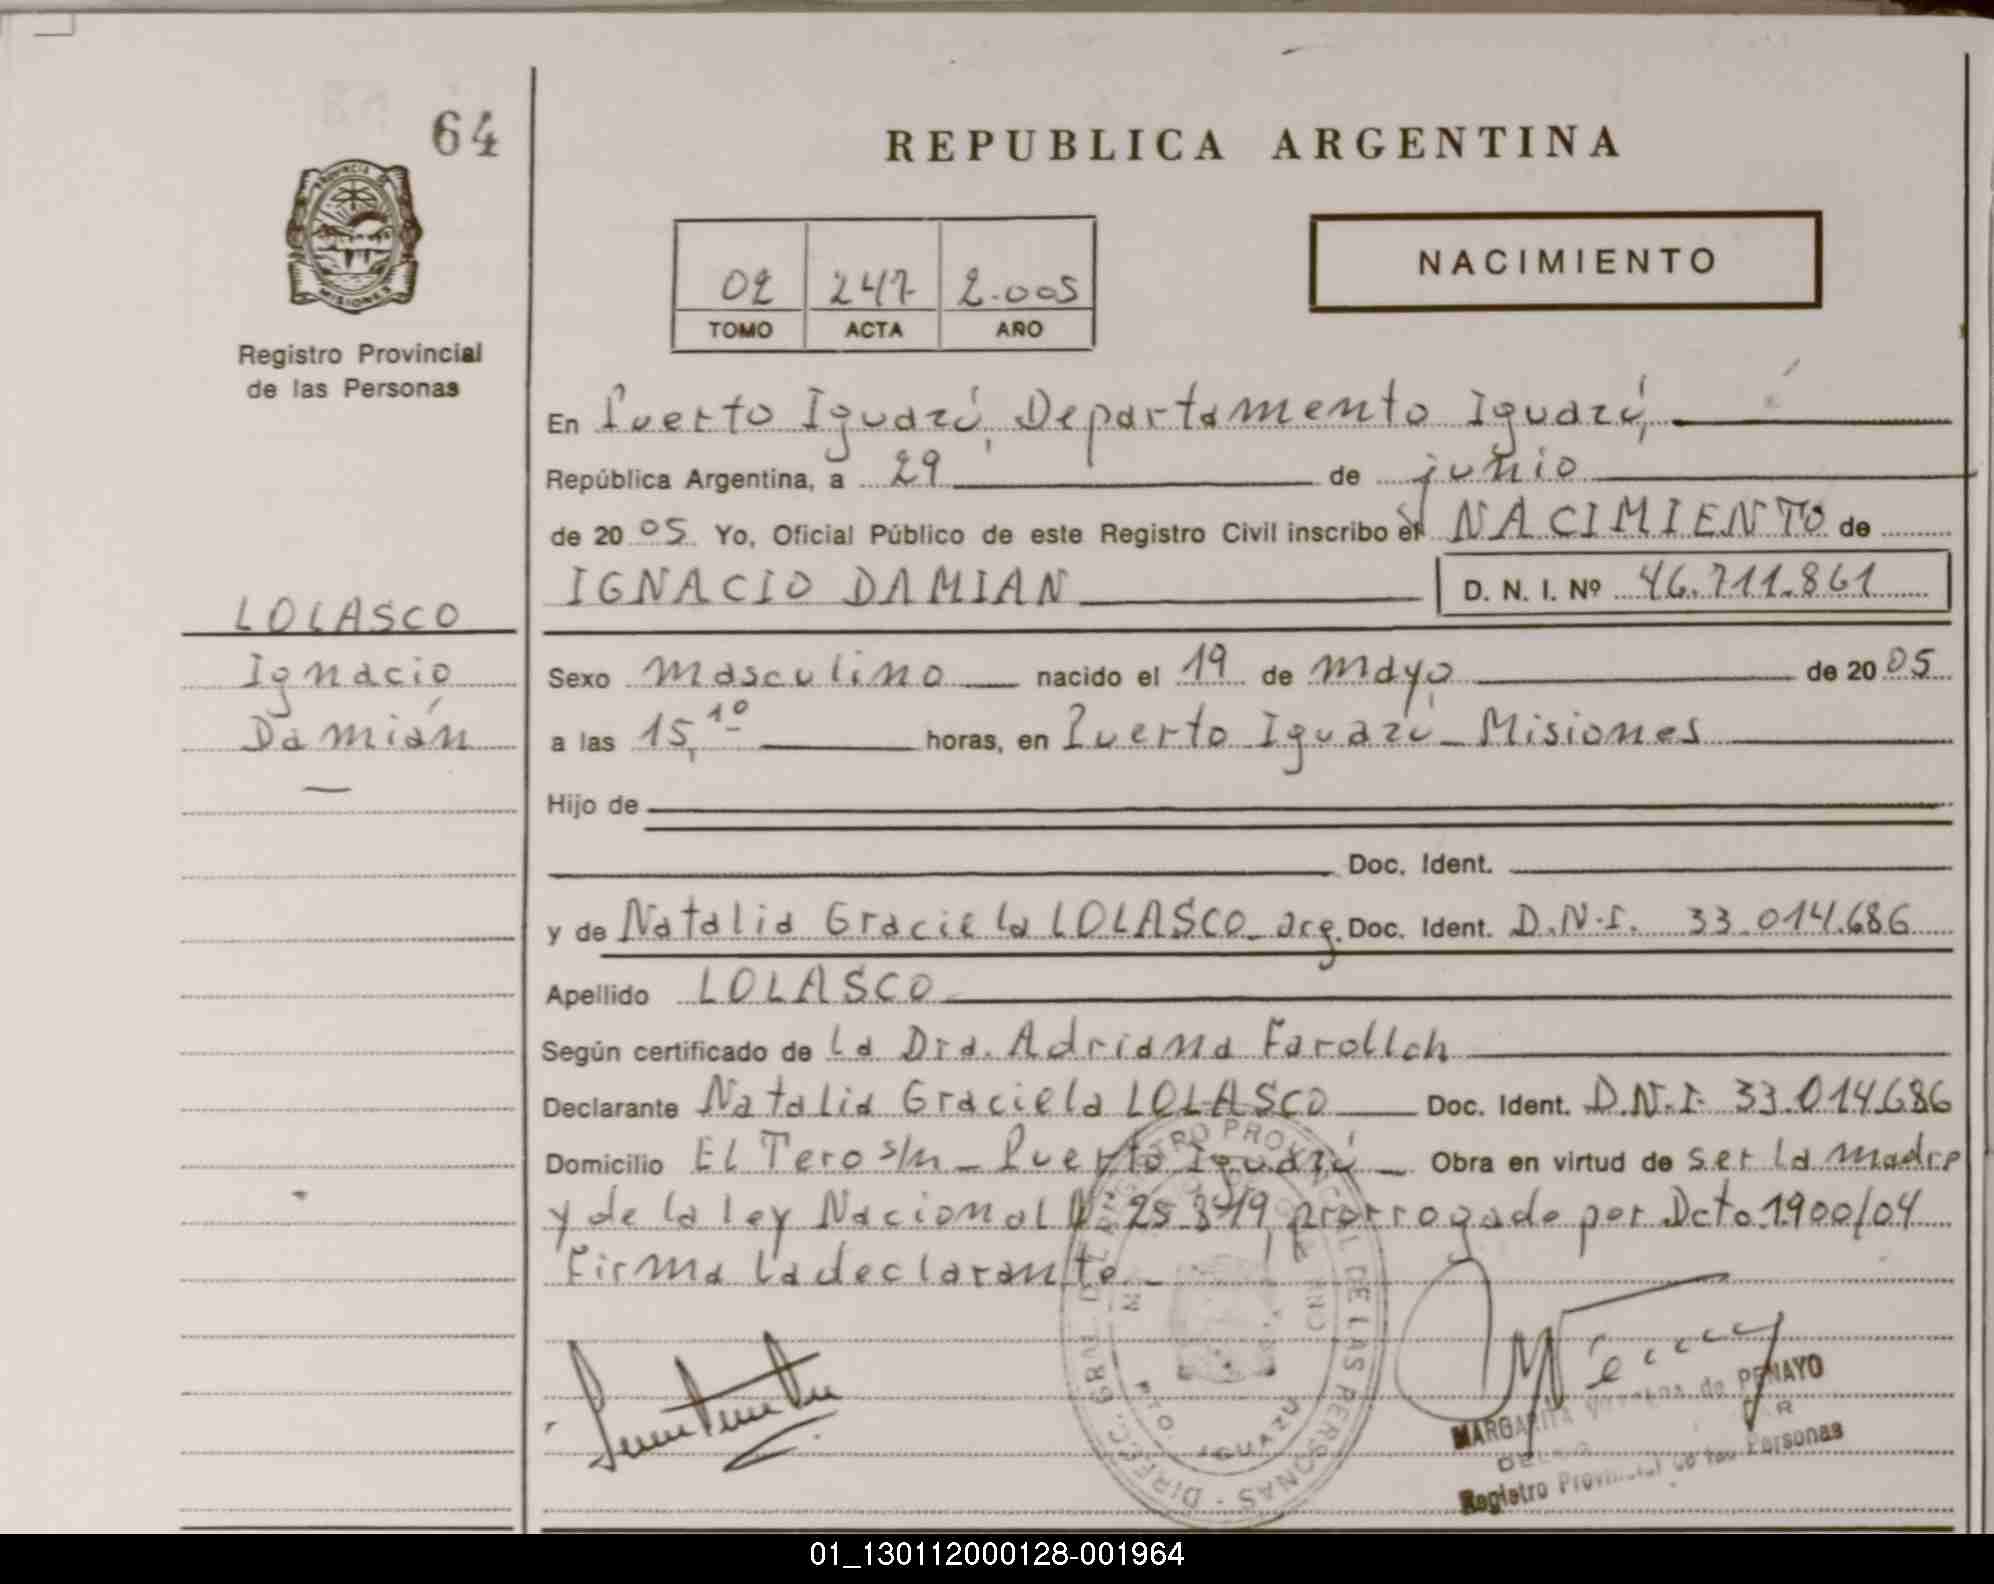 64
REPUBLICA ARGENTINA
PROVINCIA DE
MISIONES
NACIMIENTO
02 247 2.005
TOMO ACTA AÑO
Registro Provincial
de las Personas
En Puerto Iguazú, Departamento Iguazú,
República Argentina, a 29 de junio
de 20 05 Yo, Oficial Público de este Registro Civil inscribo el NACIMIENTO de
IGNACIO DAMIAN D. N. I. Nº 46.711.861
LOLASCO
Ignacio
Damián
Sexo masculino nacido el 19 de mayo de 20 05
a las 15,10 horas, en Puerto Iguazú - Misiones
Hijo de
Doc. Ident.
y de Natalia Graciela LOLASCO - arg. Doc. Ident. D.N.I. 33.014.686
Apellido LOLASCO
Según certificado de la Dra. Adriana Farolloh
Declarante Natalia Graciela LOLASCO Doc. Ident. D.N.I. 33.014.686
Domicilio El Tero s/n - Puerto Iguazú - Obra en virtud de ser la madre
y de la ley Nacional Nº 25.819, prorrogado por Dcto. 1900/04
Firma la declarante -
DIREC. GRAL. DEL REGISTRO PROVINCIAL DE LAS PERSONAS
PTO IGUAZU
MARGARITA de PENAYO
Registro Provincial de las Personas
01_130112000128-001964